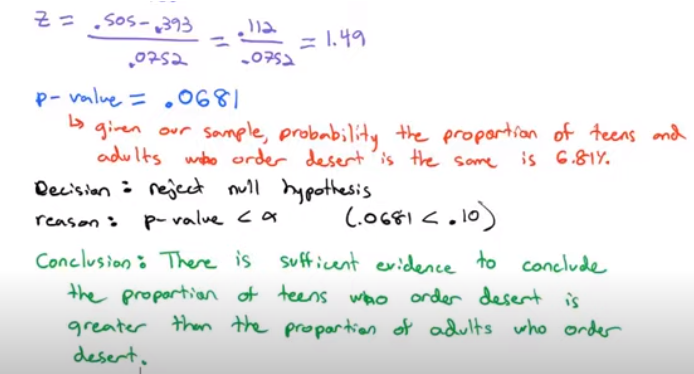 z = .505 - .393 / .0752 = .112 / .0752 = 1.49
p-value = .0681
↳ given our sample, probability the proportion of teens and
adults who order desert is the same is 6.81%.
Decision: reject null hypothesis
reason: p-value < α (.0681 < .10)
Conclusion: There is sufficent evidence to conclude
the proportion of teens who order desert is
greater than the proportion of adults who order
desert.